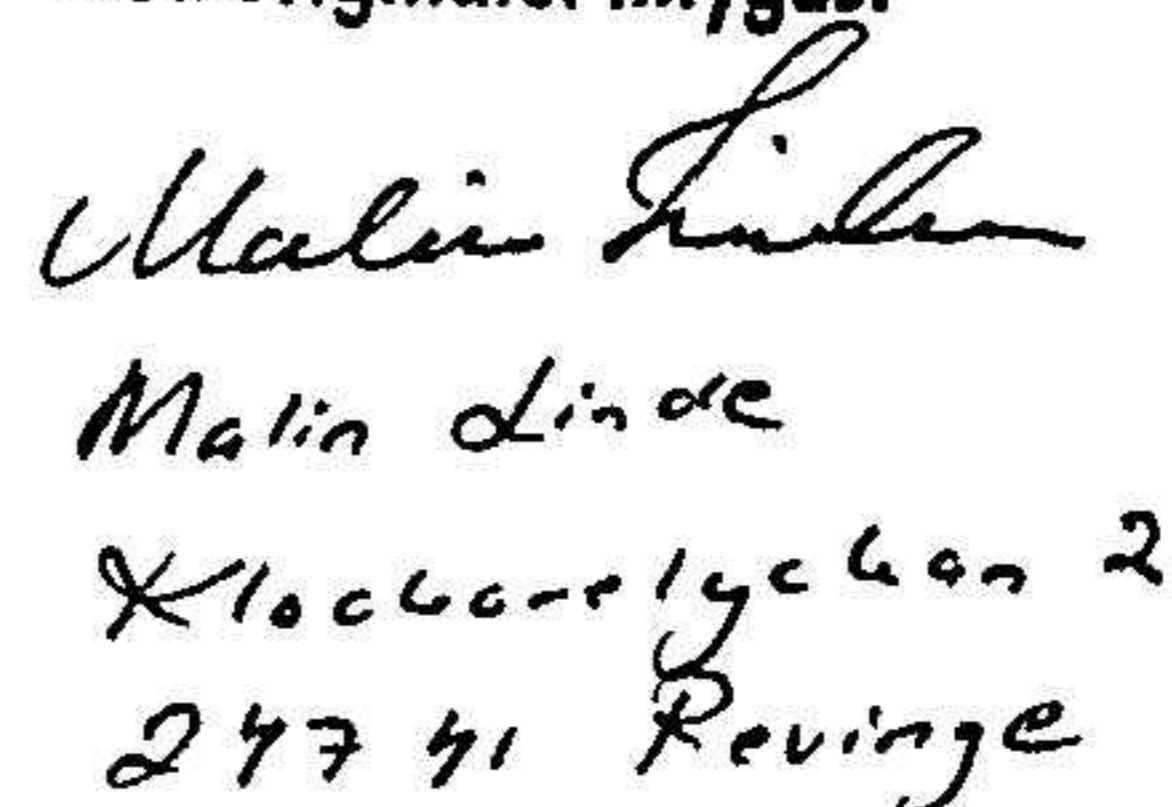 Malin Linde
Malin Linde
Klockarelyckan 2
247 41 Revinge